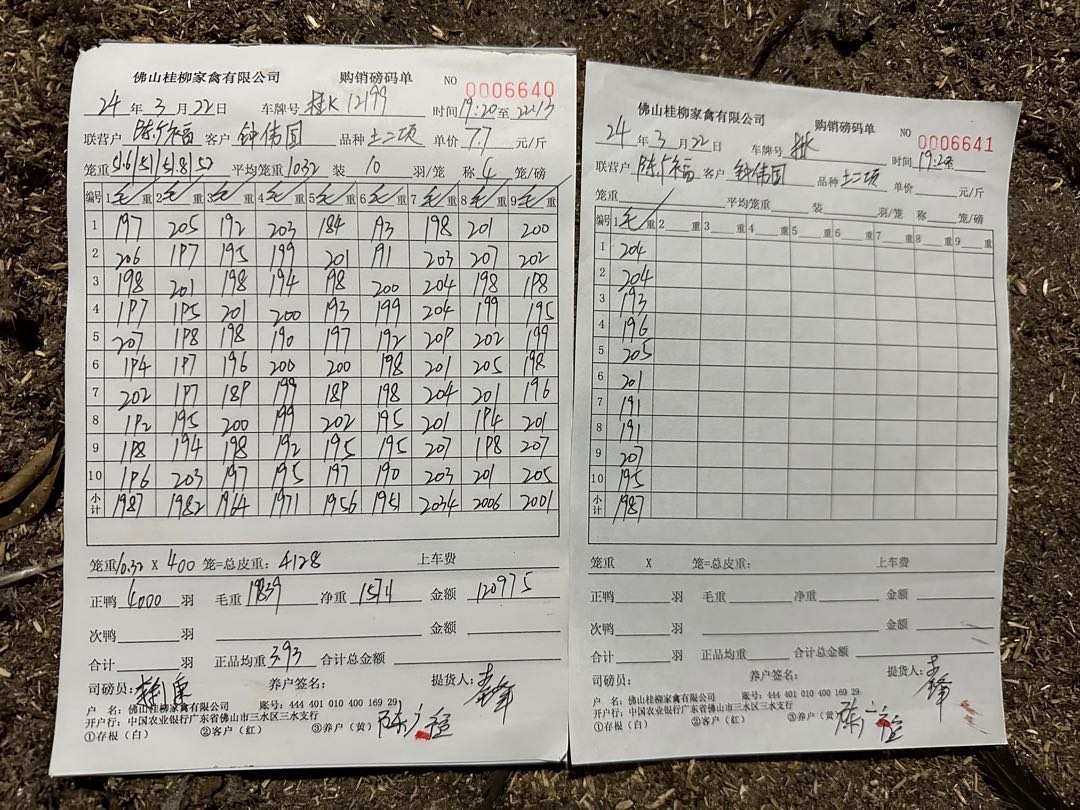 佛山桂柳家禽有限公司 购销磅码单 NO 0006640
24 年 3 月 22 日 车牌号 桂K 12199 时间 19:20 至 22:13
联营户 陈广福 客户 钟伟国 品种 土二项 单价 7.7 元/斤
笼重 51.6/51/51.8/52 平均笼重 10.32 装 10 羽/笼 称 4 笼/磅
编号 1 毛 重 2 毛 重 3 毛 重 4 毛 重 5 毛 重 6 毛 重 7 毛 重 8 毛 重 9 毛 重
1 197 205 192 203 184 193 198 201 200
2 206 197 195 199 201 191 203 207 202
3 198 201 198 194 198 200 204 198 198
4 197 195 201 200 193 199 204 199 195
5 207 198 198 190 197 192 209 202 199
6 194 197 196 200 200 198 201 205 198
7 202 197 189 199 189 198 204 201 196
8 192 195 200 199 202 195 201 194 201
9 198 194 198 192 195 195 207 198 207
10 196 203 197 195 197 190 203 201 205
小计 1987 1982 1964 1971 1956 1951 2034 2006 2001
笼重 10.32 X 400 笼=总皮重: 4128 上车费
正鸭 4000 羽 毛重 19839 净重 15711 金额 120975
次鸭 羽 金额
合计 羽 正品均重 3.93 合计总金额
司磅员: 养户签名: 提货人:
户 名: 佛山桂柳家禽有限公司 账号: 444 401 010 400 169 29
开户行: 中国农业银行广东省佛山市三水区三水支行
①存根（白） ②客户（红） ③养户（黄） 陈广福
佛山桂柳家禽有限公司 购销磅码单 NO 0006641
24 年 3 月 22 日 车牌号 桂K 时间 19:20 至
联营户 陈广福 客户 钟伟国 品种 土二项 单价 元/斤
笼重 平均笼重 装 羽/笼 称 笼/磅
编号 1 毛 重 2 重 3 重 4 重 5 重 6 重 7 重 8 重 9 重
1 204
2 204
3 193
4 196
5 205
6 201
7 191
8 191
9 207
10 195
小计 1987
笼重 X 笼=总皮重: 上车费
正鸭 羽 毛重 净重 金额
次鸭 羽 金额
合计 羽 正品均重 合计总金额
司磅员: 养户签名: 提货人:
户 名: 佛山桂柳家禽有限公司 账号: 444 401 010 400 169 29
开户行: 中国农业银行广东省佛山市三水区三水支行
①存根（白） ②客户（红） ③养户（黄） 陈广福